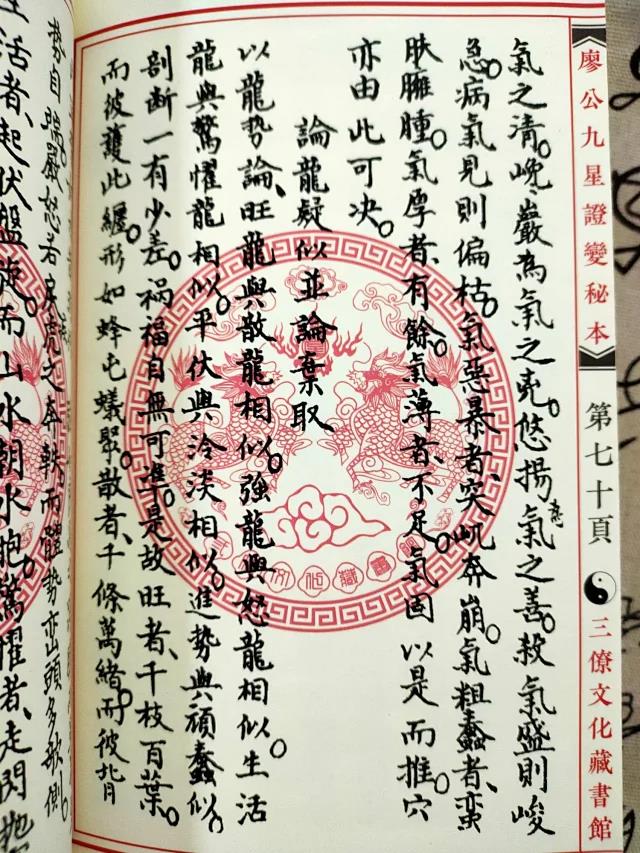 廖公九星證變秘本
第七十頁
三僚文化藏書館
氣之清。巉巖為氣之克。悠揚氣之善。殺氣盛則峻
急。病氣見則偏枯。氣惡暴者、突屼奔崩。氣粗蠢者、蠻
肤臃腫。氣厚者、有餘。氣薄者、不足。氣固以是而推。穴
亦由此可决。
論龍疑似並論棄取
以龍勢論、旺龍與散龍相似。強龍與怒龍相似。生活
龍與驚懼龍相似。平伏與泠淡相似。進勢與頑蠢似。
剖断一有少差。禍福自無可準。是故旺者、千枝百葉。
而彼護此纏。形如蜂屯蟻聚。散者、千條萬緒。而彼背
勢自端嚴。怒若虎之奔軼。而體勢巒頭多欹側。
生活者、起伏盤旋。而山水朝水抱。驚懼者、走閃